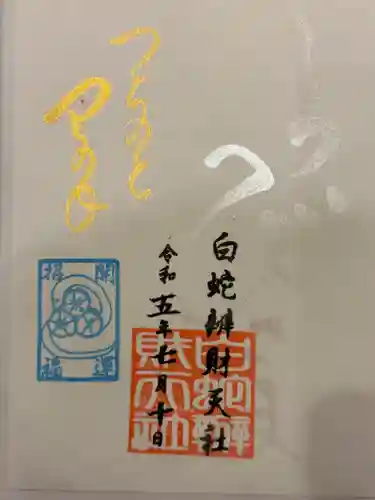 つちのと
白蛇辨財天社
令和五年七月十日
開運
招福
白蛇辨
財天社